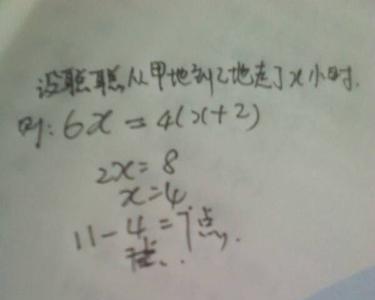 设聪聪从甲地到乙地走了x小时.
时: 6x = 4(x+2)
2x = 8
x = 4
11-4 = 7点.